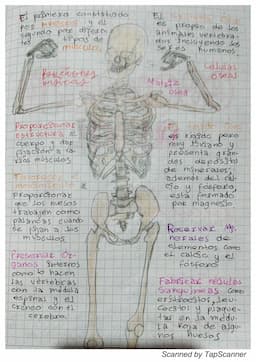 El primero constituido
por huesos y el
segundo por diferen
tes tipos de
músculos
El
es propio de los
animales vertebra
dos incluyendo los
seres humanos.
células
óseas
Matriz
ósea
Proporcionar
estructura al
cuerpo y dar
fijación a
los músculos
es rígida pero
muy liviana y
presenta gran
des depósitos
de minerales
además del cal
cio y fósforo,
está formado
por magnesio
Proporcionar
que los huesos
trabajen como
palancas cuando
se fijan a los
músculos
Reservar Mi
nerales de
elementos como
el calcio y el
fósforo
Preservar Ór
ganos internos
como lo hacen
las vértebras
con la médula
espinal y el
cráneo con el
cerebro
Fabricar células
sanguíneas como
eritrocitos, leu
cocitos y plaque
tas en la médu
la roja de algu
nos huesos
Scanned by TapScanner